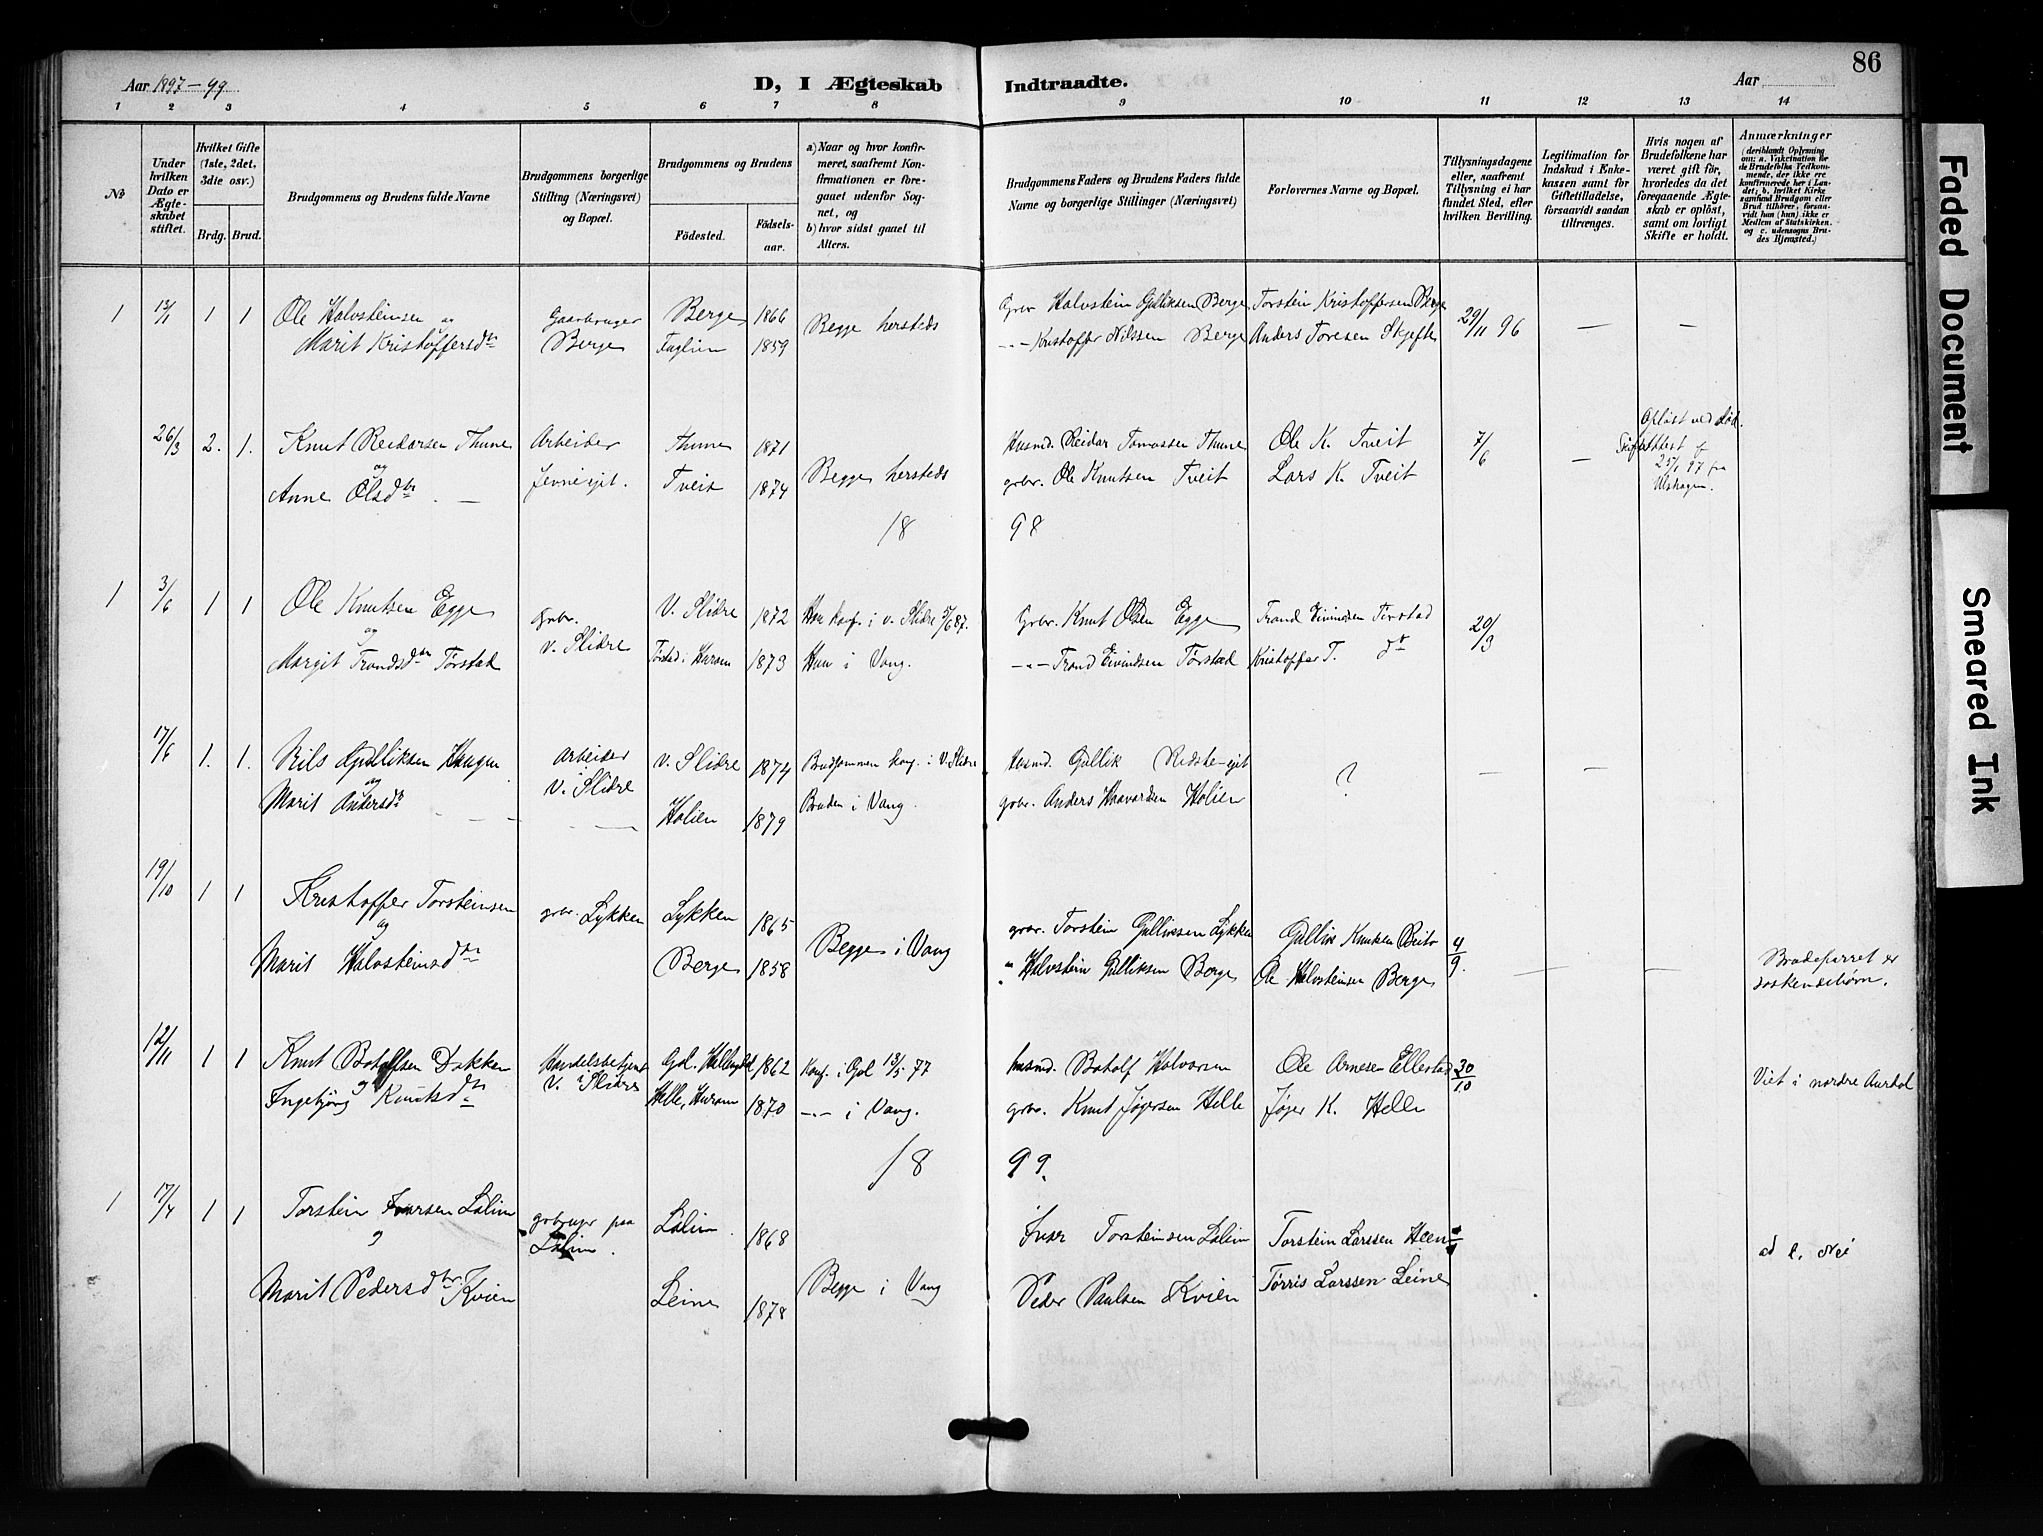 86
Aar 1897-99.
D, I Ægteskab Indtraadte.
Aar
1 2 3 4 5 6 7 8 9 10 11 12 13 14
No
Under hvilken Dato er Ægteskabet stiftet.
Hvilket Gifte (1ste, 2det, 3die osv.)
Brdg. Brud.
Brudgommens og Brudens fulde Navne
Brudgommens borgerlige Stilling (Næringsvei) og Bopæl.
Brudgommens og Brudens
Fødested.
Fødselsaar.
a) Naar og hvor konfirmeret, saafremt Konfirmationen er foregaaet udenfor Sognet, og
b) hvor sidst gaaet til Alters.
Brudgommens Faders og Brudens Faders fulde Navne og borgerlige Stillinger (Næringsvei)
Forlovernes Navne og Bopæl.
Tillysningsdagene eller, saafremt Tillysning ei har fundet Sted, efter hvilken Bevilling.
Legitimation for Indskud i Enkekassen samt for Giftetilladelse, forsaavidt saadan tiltrænges.
Hvis nogen af Brudefolkene har været gift før, hvorledes da det foregaaende Ægteskab er opløst, samt om lovligt Skifte er holdt.
Anmærkninger
(deriblandt Oplysning om: a. Vakcination for de Brudefolks Vedkommende, der ikke ere konfirmerede her i Landet; b. hvilket Kirkesamfund Brudgom eller Brud tilhører, forsaavidt han (hun) ikke er Medlem af Statskirken, og c. udensogns Brudes Hjemsted.)
1 13/1 1 1 Ole Halvsteinsen og Gaardbruger Berge 1866 Begge hersteds Grbr Halvstein Gulliksen Berge Torstein Kristoffersen Berge 29/11 96 — —
Marit Kristoffersdtr Berge Faglien 1859 -"- Kristoffer Nilssen Berge Anders Toresen Skjefte
26/3 2. 1. Knut Reidarsen Thune Arbeider Thune 1871 Begge hersteds Husmd. Reidar Tomassen Thune Ole K. Tveit 7/6 — Opløst ved død.
og
Anne Olsdtr — Tveit 1874 grbr. Ole Knutsen Tveit Lars K. Tveit Skifteattest
97 fra
18 98
1 3/6 1 1 Ole Knutsen Egge Grbr. V. Slidre 1872 Han konf. i V. Slidre 87. Grbr. Knut Olsen Egge Trond Eivindsen Tørstad 20/3
og
Margit Trondsdtr Tørstad V. Slidre Tørstad i Hurum 1873 Hun i Vang. -"- Trond Eivindsen Tørstad Kristoffer T. do
17/6 1. 1. Nils Gulliksen Haugen Arbeider V. Slidre 1874 Brudgommen konf. i V. Slidre Husmd. Gullik ? — —
og
Marit Andersdtr V. Slidre Holien 1879 Bruden i Vang. grbr. Anders Haavardsen Holien
19/10 1 1 Kristoffer Torsteinsen grbr. Lykken Lykken 1865 Begge i Vang grbr. Torstein Gulliksen Lykken Gullik Knutsen Beito 4/9. — — Brudeparret er
og
Marit Halvsteinsdtr Berge 1858 " Halvstein Gulliksen Berge Ole Halvsteinsen Berge søskendebørn.
12/11 1 1 Knut Botolfsen Dokken Handelsbetjent Gol. Hallingdal 1862 Konf. i Gol 13/5 77 husmd. Botolf Halvorsen Ole Arnesen Ellestad 30/10 Viet i nordre Aurdal
Ingebjørg Knutsdtr V. Slidre Helle, Hurum 1870 -"- i Vang. grbr. Knut Jøgersen Helle Jøger K. Helle
18 99.
1 17/4 1 1 Torstein Iversen Lølim grbruger paa Lølim. Lølim 1868 Begge i Vang Iver Torsteinsen Lølim Torstein Larssen Heen
Marit Pedersdtr. Kvien Leine 1878 Peder Paulsen Kvien Tørris Larssen Leine
Faded Document
Smeared Ink